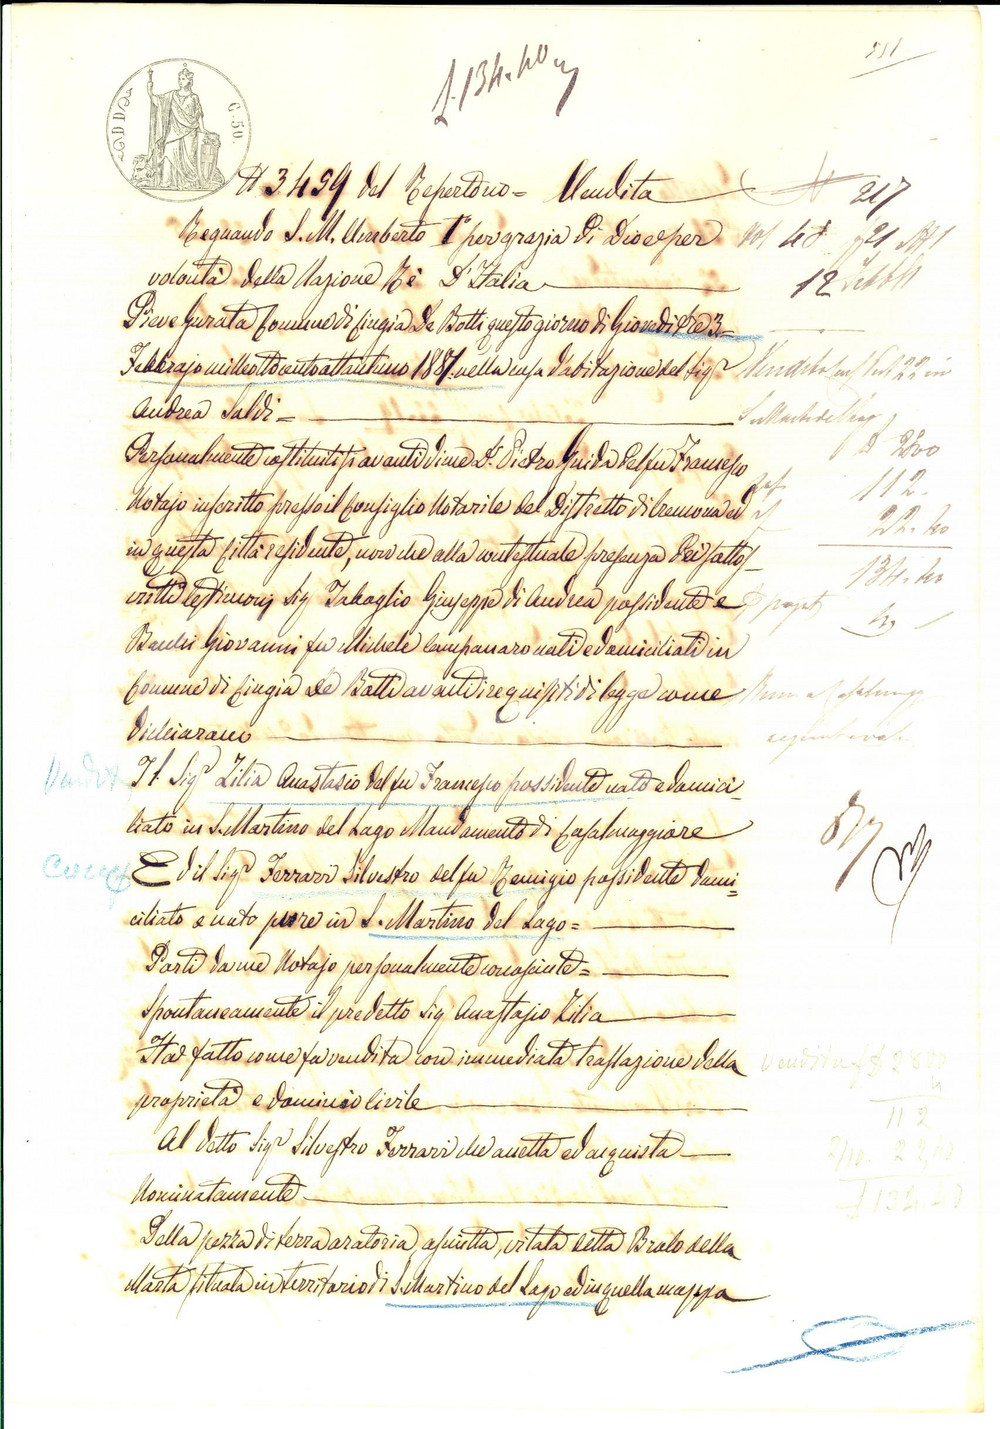 551
£. 134.40
C. 50.
N 3459 del Repertorio = Vendita
217
Regnando S. M. Umberto 1° per grazia di Dio e per
Vol 48 f 21
volontà della Nazione Rè d'Italia
12 Febb
Pieve Gurata Comune di Cingia De Botti questo giorno di Giovedì tre 3=
Febbrajo milleottocentottantuno 1881 nella casa d'abitazione del Sigr
Andrea Saldi =
2800
Personalmente costituitisi avanti di me Dr. Pietro Guida del fu Francesco
112.
Notajo inscritto presso il Consiglio Notarile del Distretto di Cremona ed
22.40
in questa Città residente, non che alla contestuale presenza dei sottos-
134.40
critti testimonj Sig Tabaglio Giuseppe di Andrea possidente e
Giovanni fu Michele Campanaro nati e domiciliati in
Comune di Cingia De Botti aventi i requisiti di legge come
dichiarano
Vendit
Il Sigr Zilia Anastasio del fu Francesco possidente nato e domici-
liato in S. Martino del Lago Mandamento di Casalmaggiore
Ed il Sigr Ferrari Silvestro del fu Remigio possidente domi=
ciliato e nato pure in S. Martino del Lago =
Parti da me Notajo personalmente conosciute =
Spontaneamente il predetto Sig Anastasio Zilia
Ha fatto come fa vendita con immediata traslazione della
Vendita £ 2800
proprietà e dominio civile
112
Al detto Sigr Silvestro Ferrari che accetta ed acquista
2/10. 22.40
Nominatamente
£ 134.40
Della pezza di terra aratoria, asciutta, vitata detta Brolo della
Marta situata in territorio di S. Martino del Lago ed in quella mappa